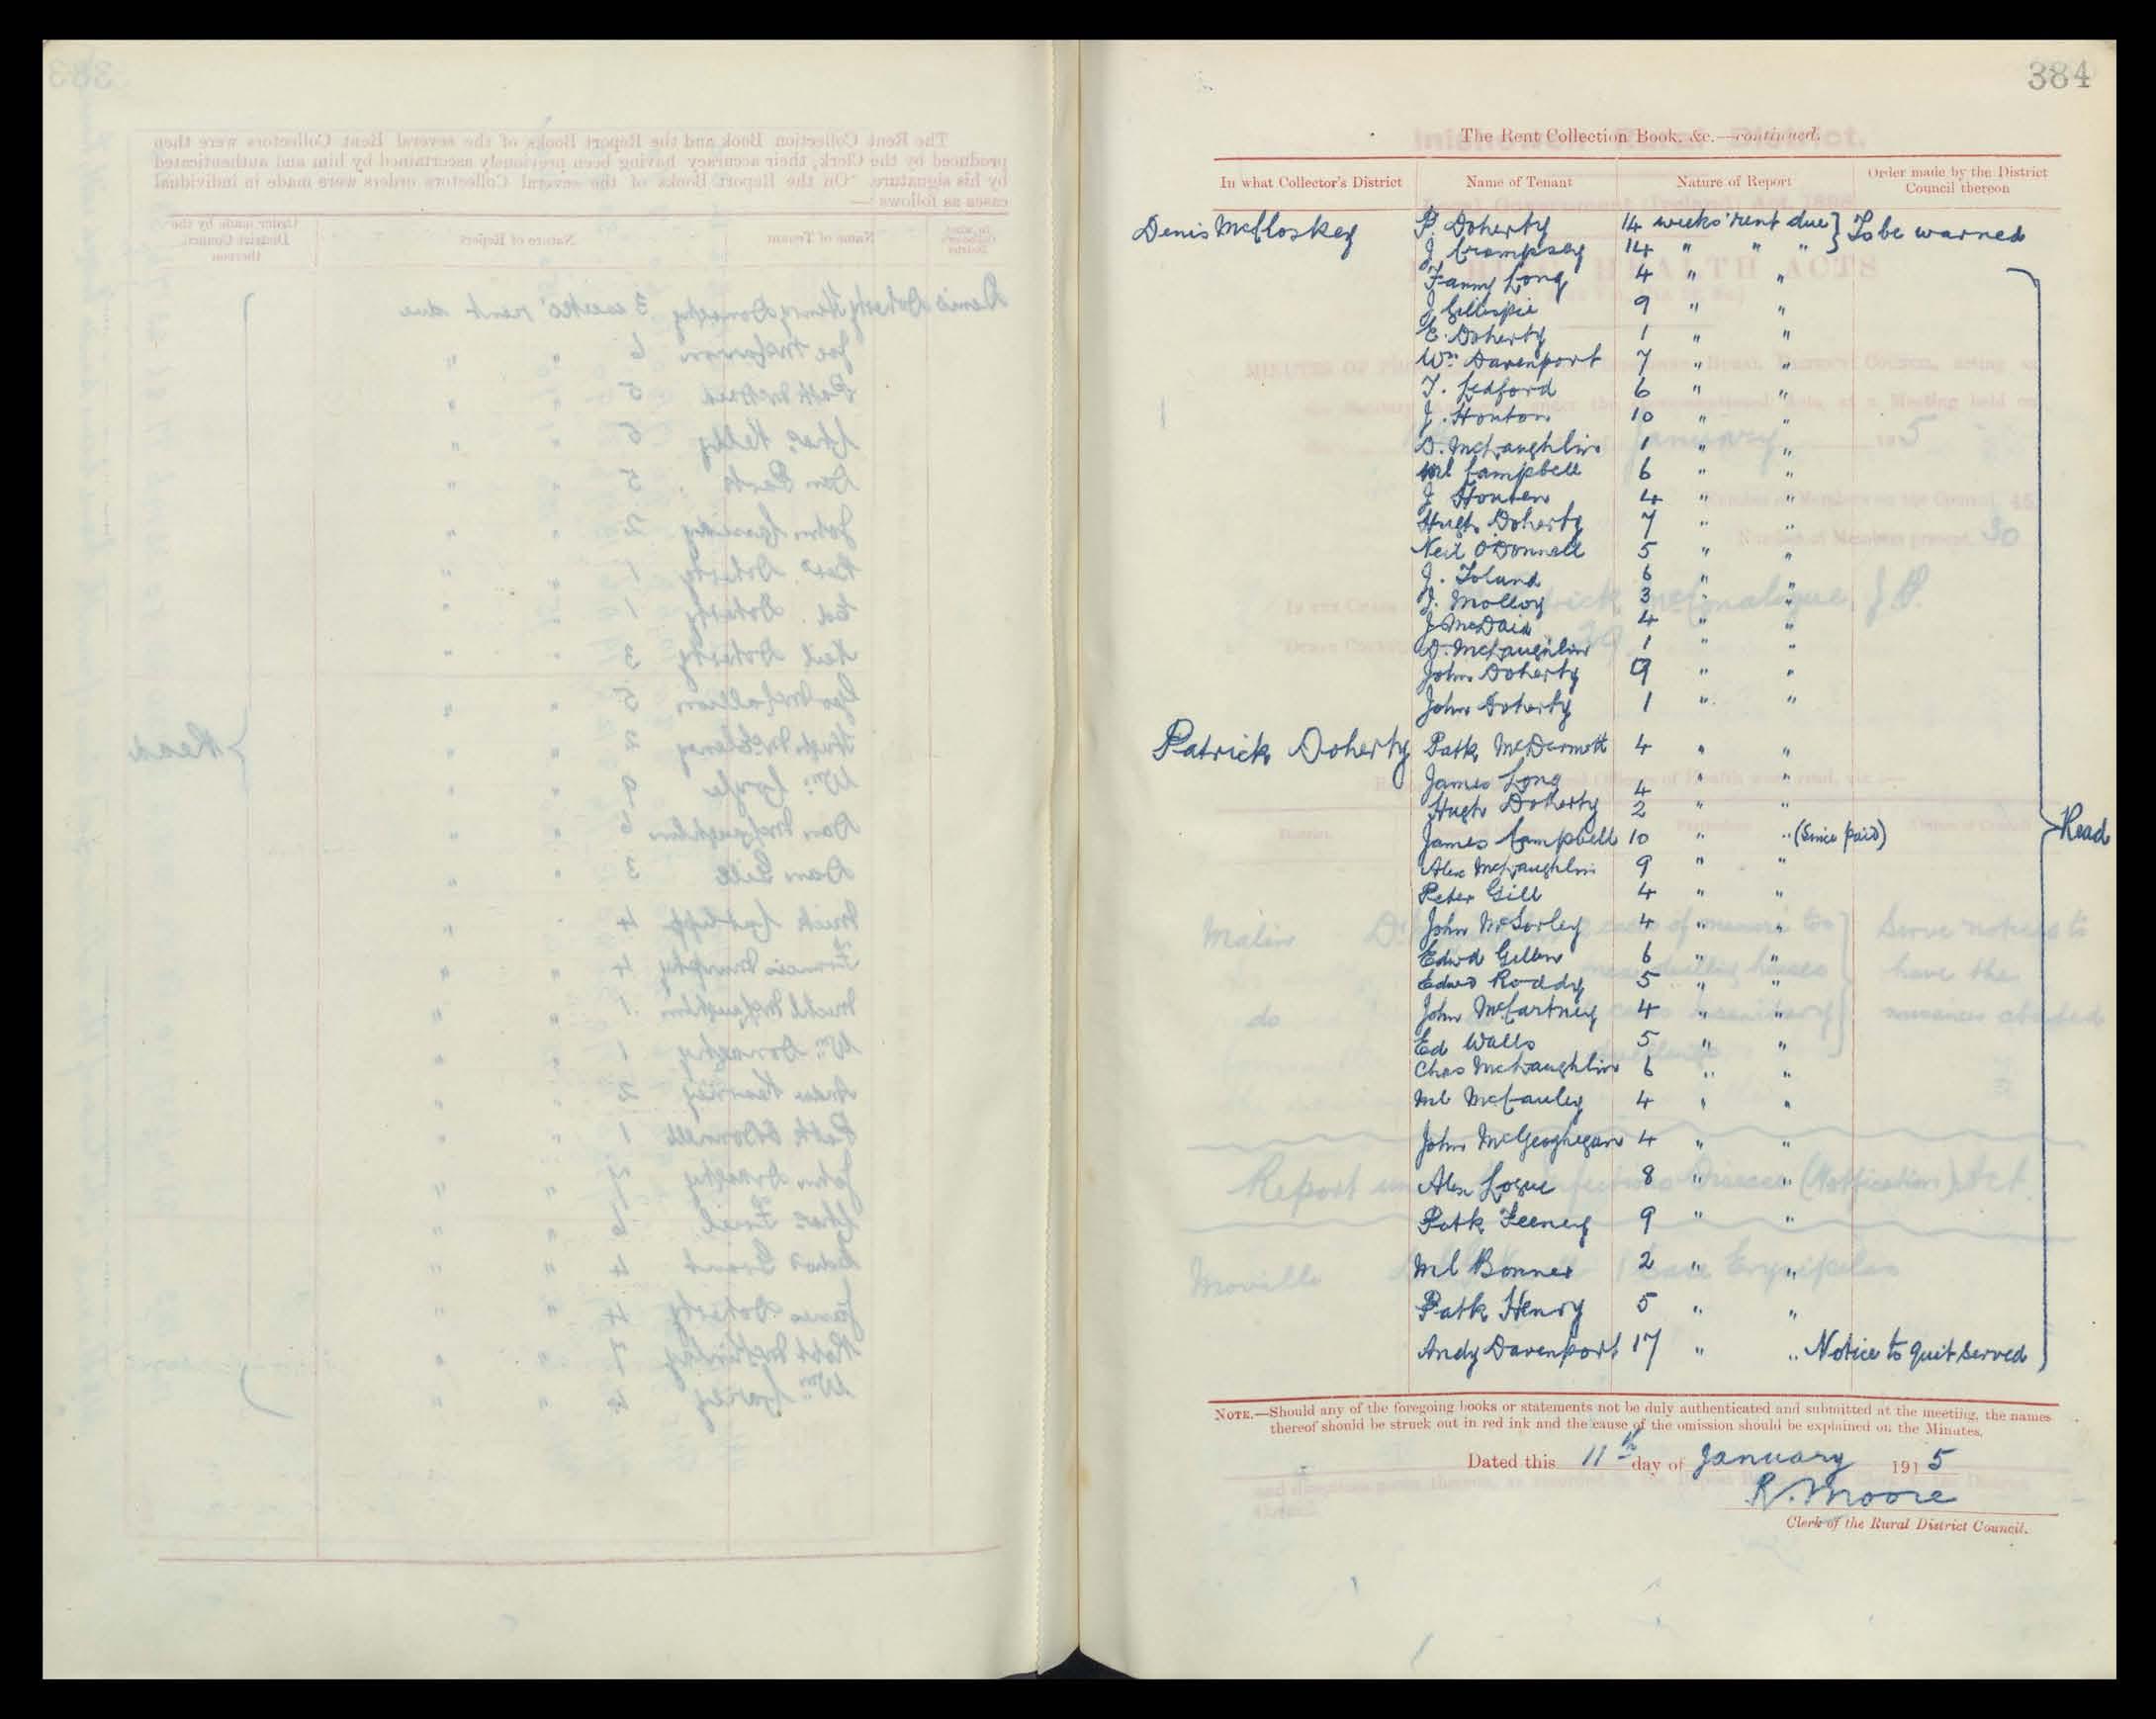 384
The Rent Collection Book, &c.—continued.
In what Collector's District Name of Tenant Nature of Report Order made by the District Council thereon
Denis McCloskey P. Doherty 14 weeks' rent due } To be warned
J Crampsey 14 " " "
Fanny Long 4 " "
J Gillespie 9 " "
E. Doherty 1 " "
Wm Davenport 7 " "
T. Ledford 6 " "
J. Houton 10 " "
D. McLaughlin 1 " "
Ml Campbell 6 " "
J Houten 4 " "
Hugh Doherty 7 " "
Neil O'Donnell 5 " "
J. Toland 6 " "
J. Molloy 3 " "
J McDaid 4 " "
D. McLaughlin 1 " "
John Doherty 9 " "
John Doherty 1 " "
Patrick Doherty Patk McDermott 4 " "
James Long 4 " "
Hugh Doherty 2 " "
James Campbell 10 " " (Since paid) Read
Alex McLaughlin 9 " "
Peter Gill 4 " "
John McSorley 4 " "
Edwd Gillen 6 " "
Edwd Roddy 5 " "
John McCartney 4 " "
Ed Walls 5 " "
Chas McLaughlin 6 " "
Ml McCauley 4 " "
John McGeoghegan 4 " "
Alex Logue 8 " "
Patk Feeney 9 " "
Ml Bonner 2 " "
Patk Henry 5 " "
Andy Davenport 17 " " Notice to quit served
NOTE.—Should any of the foregoing books or statements not be duly authenticated and submitted at the meeting, the names
thereof should be struck out in red ink and the cause of the omission should be explained on the Minutes.
Dated this 11th day of January 1915
R. Moore
Clerk of the Rural District Council.